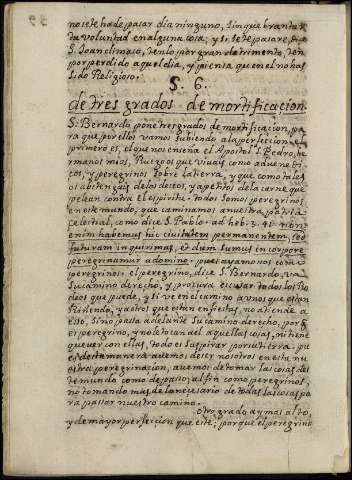 no se te ha de pasar dia ninguno, sin quebrantar
tu voluntad en alguna cosa; y si se te pasare, dize
S. Joan climaco, tenlo por gran detrimento, ten
por perdido aquel dia, y piensa que en el no has
sido Religioso.
S. 6.
de tres grados de mortificacion.
S. Bernardo pone tres grados de mortificacion, pa
ra que por ellos vamos subiendo a la perfeccion. el
primero es, el que nos enseña el Apostol S. Pedro, her
manos mios, Ruegoos que vivais como adveneti
cos, y peregrinos sobre la tierra, y que como tales
os abstengais de los deseos, y apetitos de la carne que
pelean contra el espiritu. todos somos peregrinos
en este mundo, que caminamos a nuestra patria
celestial, como dice S. Pablo. ad heb. 13. non
enim habemus hic civitatem permanentem, sed
futuram inquirimus, et dum sumus in corpore
peregrinamur a domino. pues ayamonos como
peregrinos. el peregrino, dice S. Bernardo, va
su camino derecho, y procura escusar todos los Ro
deos que puede, y si ve en el camino a unos que estan
Riñendo, y a otros que estan en fiestas, no atiende a
esso, sino pasa adelante su camino derecho, porq
es peregrino, y no le tocan a el aquellas cosas, ni tiene
que ver con ellas, todo es suspirar por su tierra. pu
es desta manera avemos de ser nosotros en esta nu
estra peregrinacion, avemos de tomar las cosas des
te mundo como de paso, al fin como peregrinos,
no tomando mas de lo necesario de todas las cosas pa
ra passar nuestro camino.
otro grado ay mas alto,
y de mayor perfeccion que este; porque el peregrino